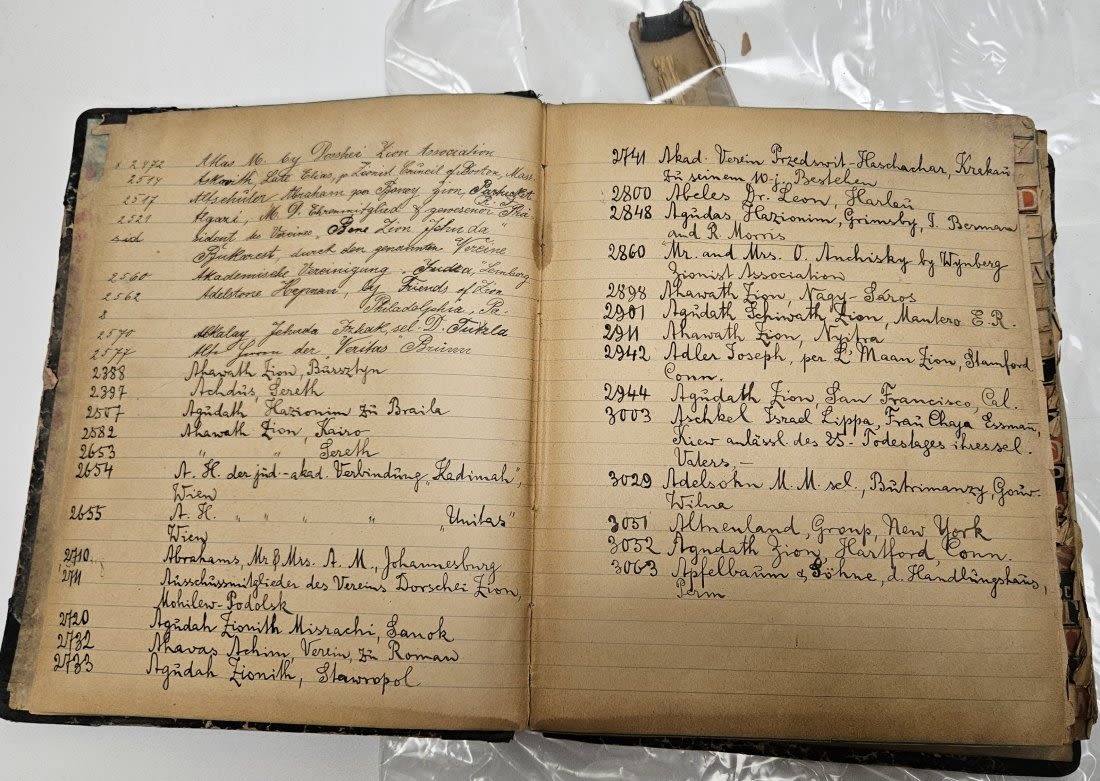 x 2472 Atlas M. by Dorshei Zion Association
2514 Askowith, Lutz Elias, p. Zionist Council of Boston, Mass.
2517 Altschuler Abraham per Bonoy Zion, Pawtucket
R. I.
2521 Algazi, M. D. Ehrenmitglied & gewesener Prä
sident des Vereines "Bene Zion Jehuda"
Bukarest, durch den genannten Vereine
2560 Akademische Vereinigung "Judea", Lemberg
2562 Adelstone Hyman, by Friends of Zion
Philadelphia, Pa.
2570 Alkalay Jehuda sel. D. Tuzla
2577 Alte Herren der "Veritas" Brünn
2388 Ahawath Zion, Bursztyn
2397 Achdus, Sereth
2507 Agudath Hazionim zu Braila
2582 Ahawath Zion, Kairo
2653 " " Sereth
2654 A. H. der jüd-akad. Verbindung "Kadimah",
Wien
2655 A. H. " " " " "Unitas"
Wien
2710 Abrahams, Mr & Mrs. A. M., Johannesburg
2711 Ausschussmitglieder des Vereins Dorschei Zion,
Mohilew-Podolsk
2720 Agudah Zionith Misrachi, Sanok
2732 Ahavas Achim, Verein, zu Roman
2733 Agudah Zionith, Stawropol
2741 Akad. Verein Przedswit-Haschachar, Krakau
zu seinem 10-j. Bestehen
2800 Abeles Dr. Leon, Harlau
2848 Agudas Hazionim, Grimsby, I. Berman
and R. Morris
2860 Mr. and Mrs. O. Anchisky by Wynberg
Zionist Association
2898 Ahawath Zion, Nagy-Sáros
2901 Agudath Schiwath Zion, Mantero E. R.
2911 Ahawath Zion, Nyitra
2942 Adler Joseph, per L'Maan Zion, Stamford
Conn.
2944 Agudath Zion San Francisco, Cal.
3003 Aschkel Israel Lippa, Frau Chaja Essman,
Kiew anlässl. des 25.- Todestages ihres sel.
Vaters,-
3029 Adelsohn M. M. sel., Butrimanzy, Gouv.
Wilna
3051 Altneuland, Group, New York
3052 Agudath Zion, Hartford, Conn.
3063 Apfelbaum & Söhne, d. Handlungshaus,
Perm
D